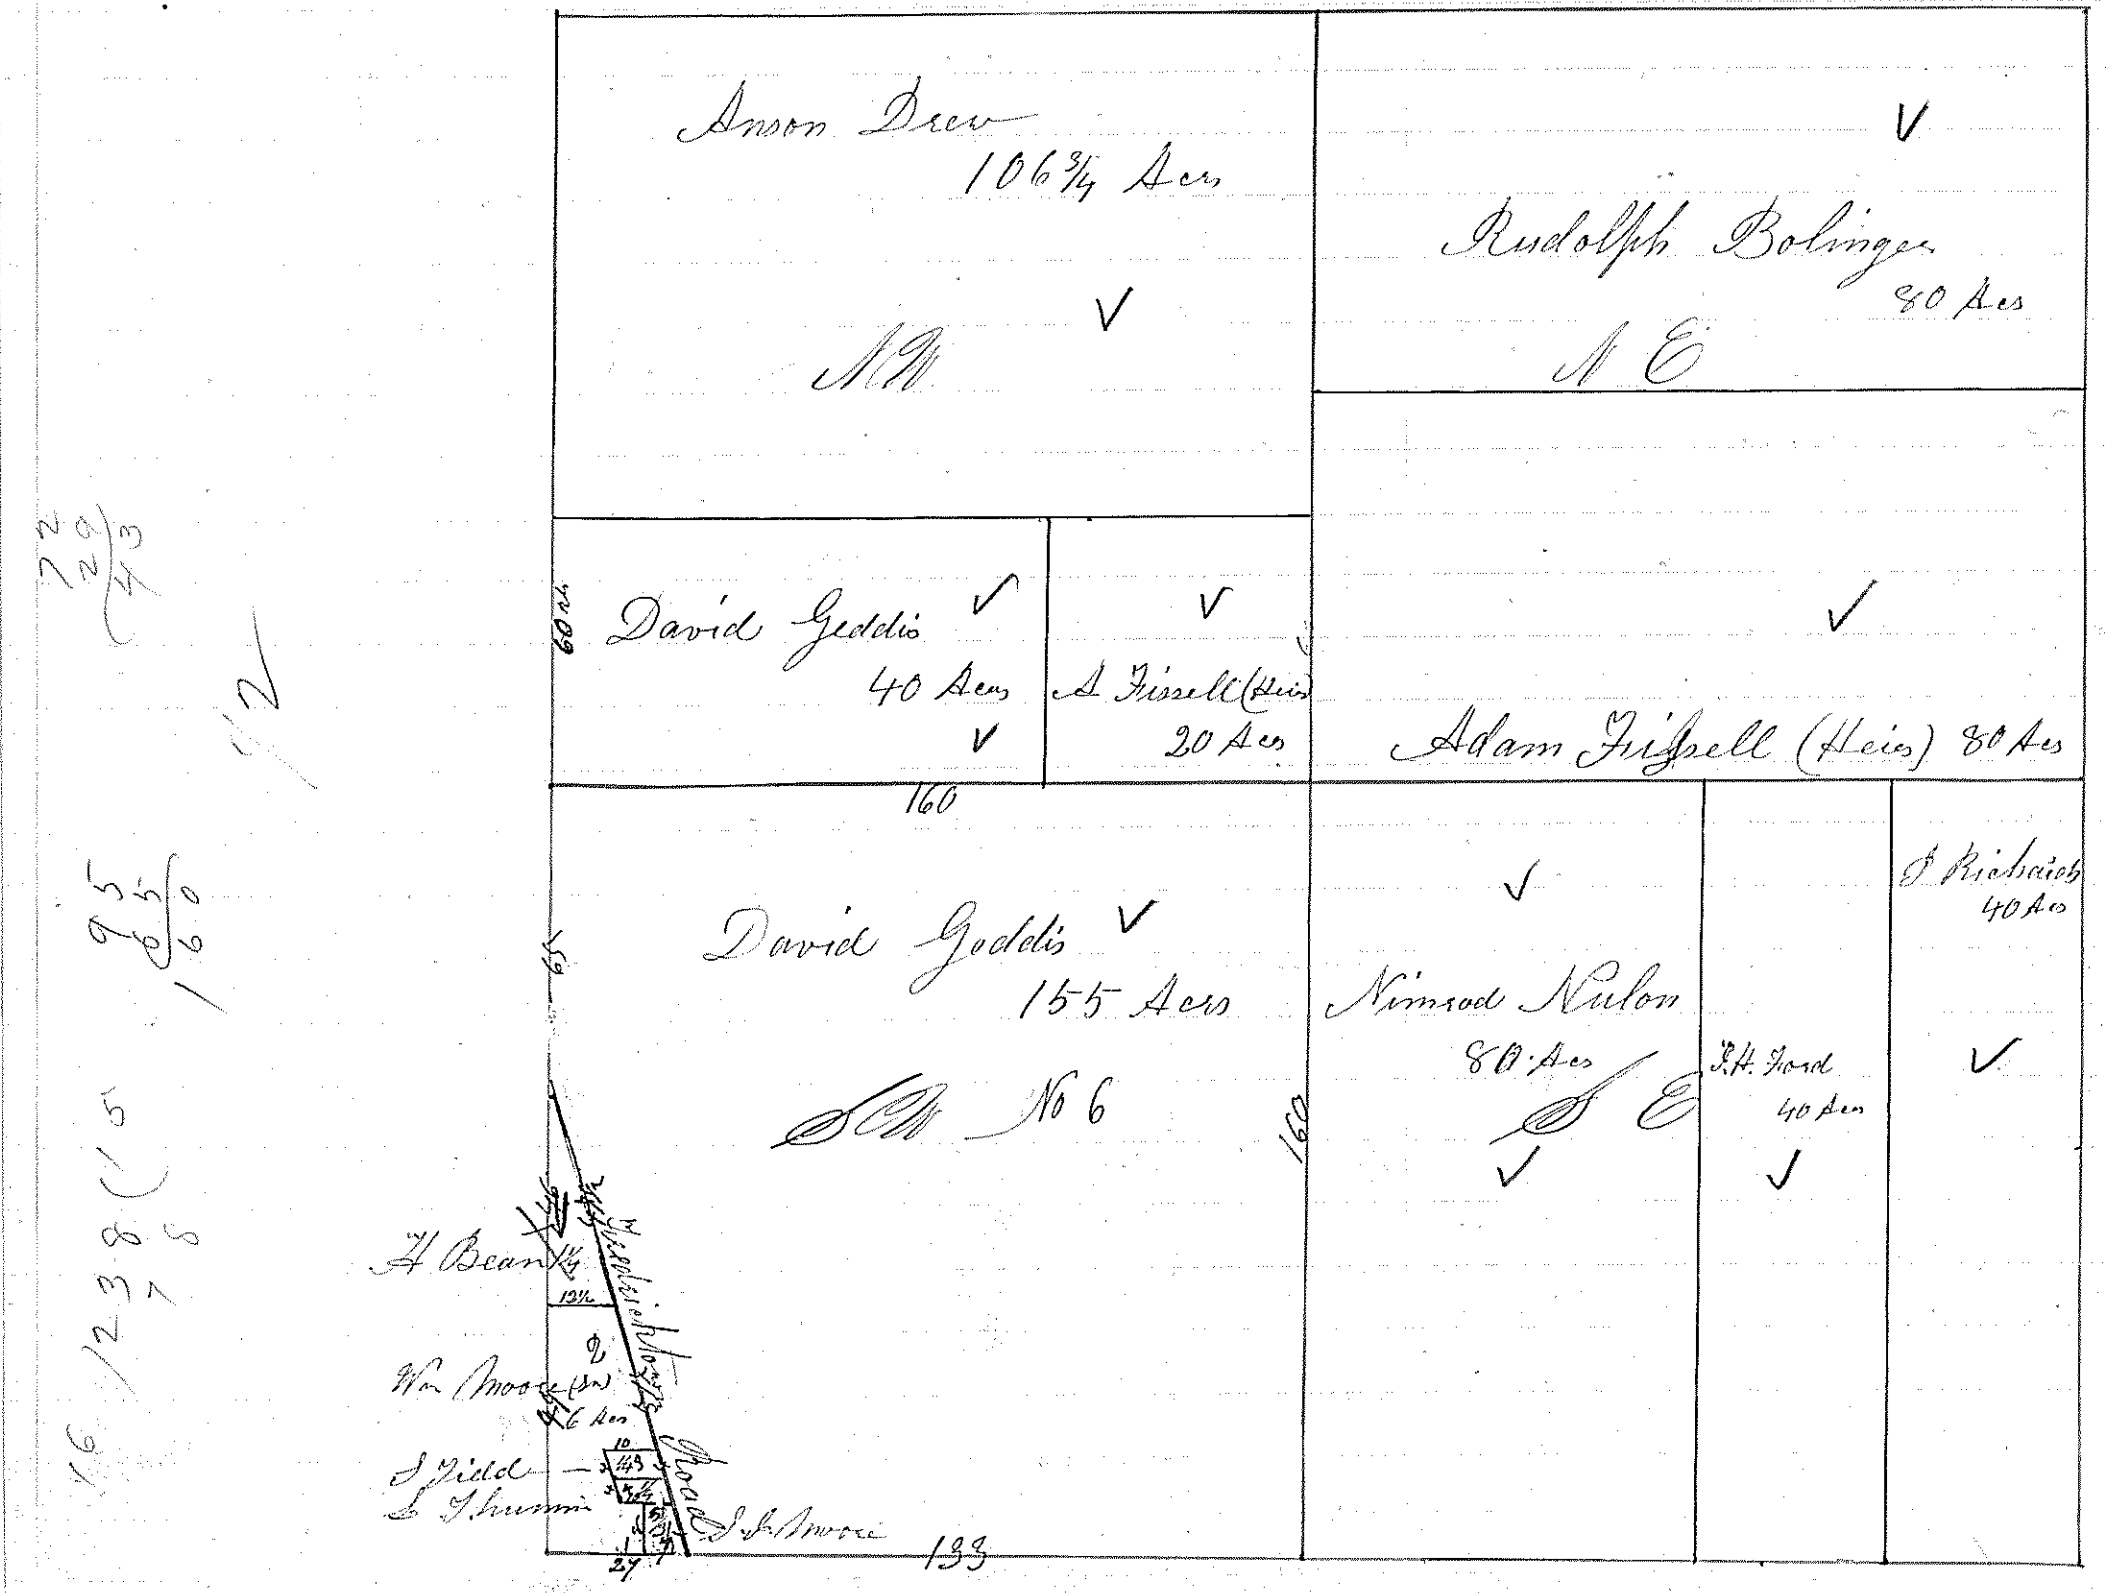 Anson Drew
106 3/4 Acrs
NW
Rudolph Bolinger
80 Acs
N E
60 rds
David Geddis
40 Acrs
A Fissell (Heirs)
20 Acs
Adam Fissell (Heirs) 80 Acs
160
65
David Geddis
155 Acrs
SW No 6
160
Nimrod Nulon
80 Acs
S E
J.H. Ford
40 Acs
J Richards
40 Acs
46
H Bean 1 1/4
13 1/2
Fredericktown
Road
2
Wm Moore (Sn)
49
6 Acs
10
143
J Fidd
S Thumm
J J Moore
27
133
72
29
43
12
95
65
160
16 / 238 ( 15
78